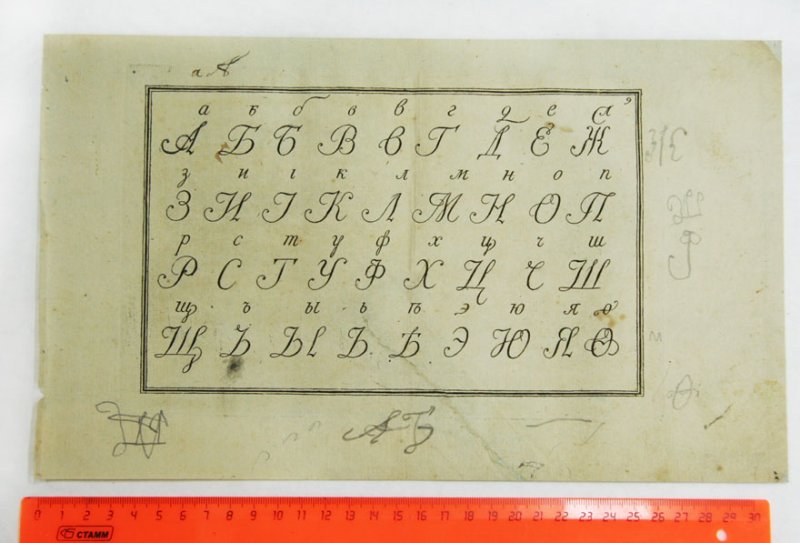 а А
а ѣ б в в г д е ж э
А Б Б В В Г Д Е Ж
з и і к л м н о п
З И І К Л М Н О П
р с т у ф х ц ч ш
Р С Т У Ф Х Ц Ч Ш
щ ъ ы ь ѣ э ю я ѳ
Щ Ъ Ы Ь Ѣ Э Ю Я Ѳ
АБ
0 1 2 3 4 5 6 7 8 9 10 11 12 13 14 15 16 17 18 19 20 21 22 23 24 25 26 27 28 29 30
СТАММ